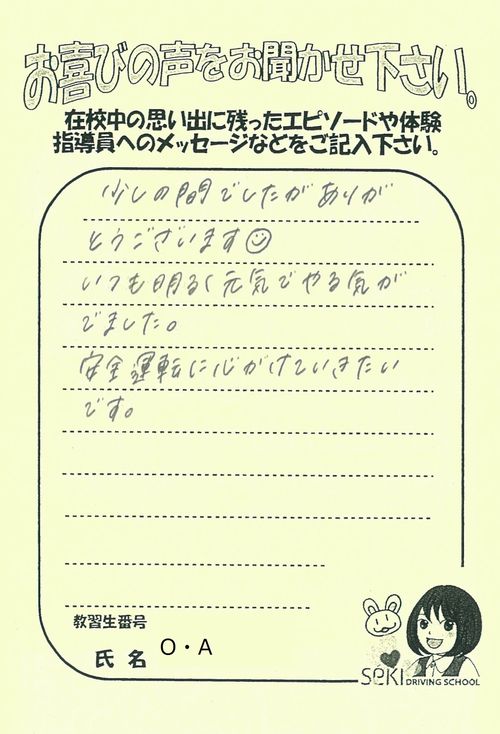 お喜びの声をお聞かせ下さい。
在校中の思い出に残ったエピソードや体験
指導員へのメッセージなどをご記入下さい。
少しの間でしたがありが
とうございます☺
いつも明るく元気でやる気が
でました。
安全運転に心がけていきたい
です。
教習生番号
氏名 O・A
SEKI DRIVING SCHOOL